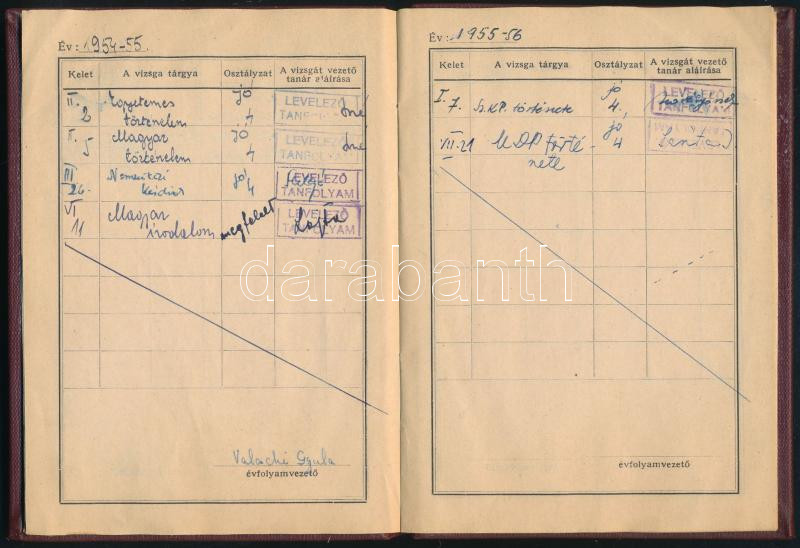 Év: 1954-55.
Kelet A vizsga tárgya Osztályzat A vizsgát vezető tanár aláírása
II. 2 Egyetemes jó LEVELEZŐ
történelem 4 TANFOLYAM
II. 5 Magyar jó LEVELEZŐ
történelem 4 TANFOLYAM
III Nemzetközi jó LEVELEZŐ
26. 4 TANFOLYAM
VI Magyar LEVELEZŐ
11 irodalom megfelelt TANFOLYAM
Valachi Gyula
évfolyamvezető
Év: 1955-56
Kelet A vizsga tárgya Osztályzat A vizsgát vezető tanár aláírása
I. jó LEVELEZŐ
7. Sz.K.P. történek 4. TANFOLYAM
jó
VII.21 MDP törté- 4
nete
évfolyamvezető
darabanth